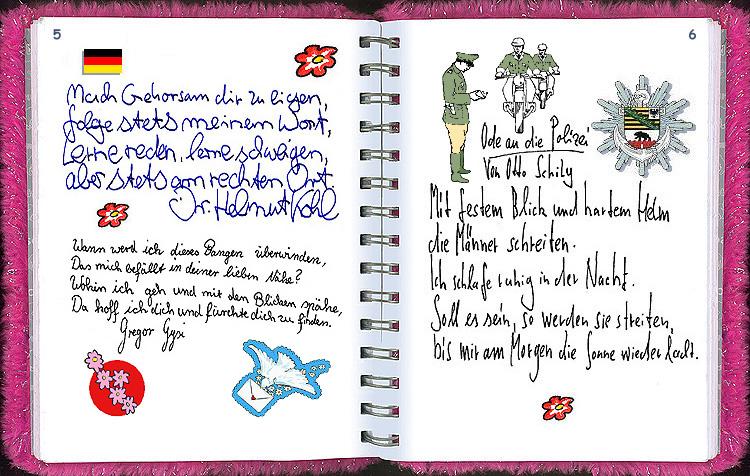 5
Mach Gehorsam dir zu eigen,
folge stets meinem Wort,
Lerne reden, lerne schweigen,
aber stets am rechten Ort.
Dr. Helmut Kohl
Wann werd ich dieses Bangen überwinden,
Das mich befällt in deiner lieben Nähe?
Wohin ich geh und mit den Blicken spähe,
Da hoff ich dich und fürchte dich zu finden.
Gregor Gysi
6
Ode an die Polizei
Von Otto Schily
Mit festem Blick und hartem Helm
die Männer schreiten.
Ich schlafe ruhig in der Nacht.
Soll es sein, so werden sie streiten,
bis mir am Morgen die Sonne wieder lacht.